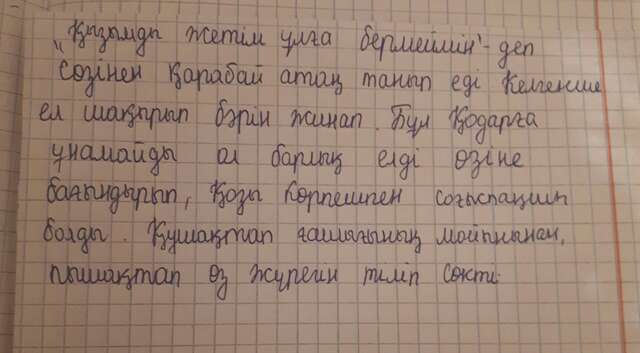 "Қызымды жетім ұлға бермеймін"- деп
сөзінен Қарабай атаң танып еді Келгенше
ел шақырып бәрін жинап. Бұл Қодарға
ұнамайды ол барлық елді өзіне
бағындырып, Қозы Көрпешпен соғыспақшы
болды. Құшақтап ғашығының мойынынан,
пышақтап өз жүрегін тіліп сөкті